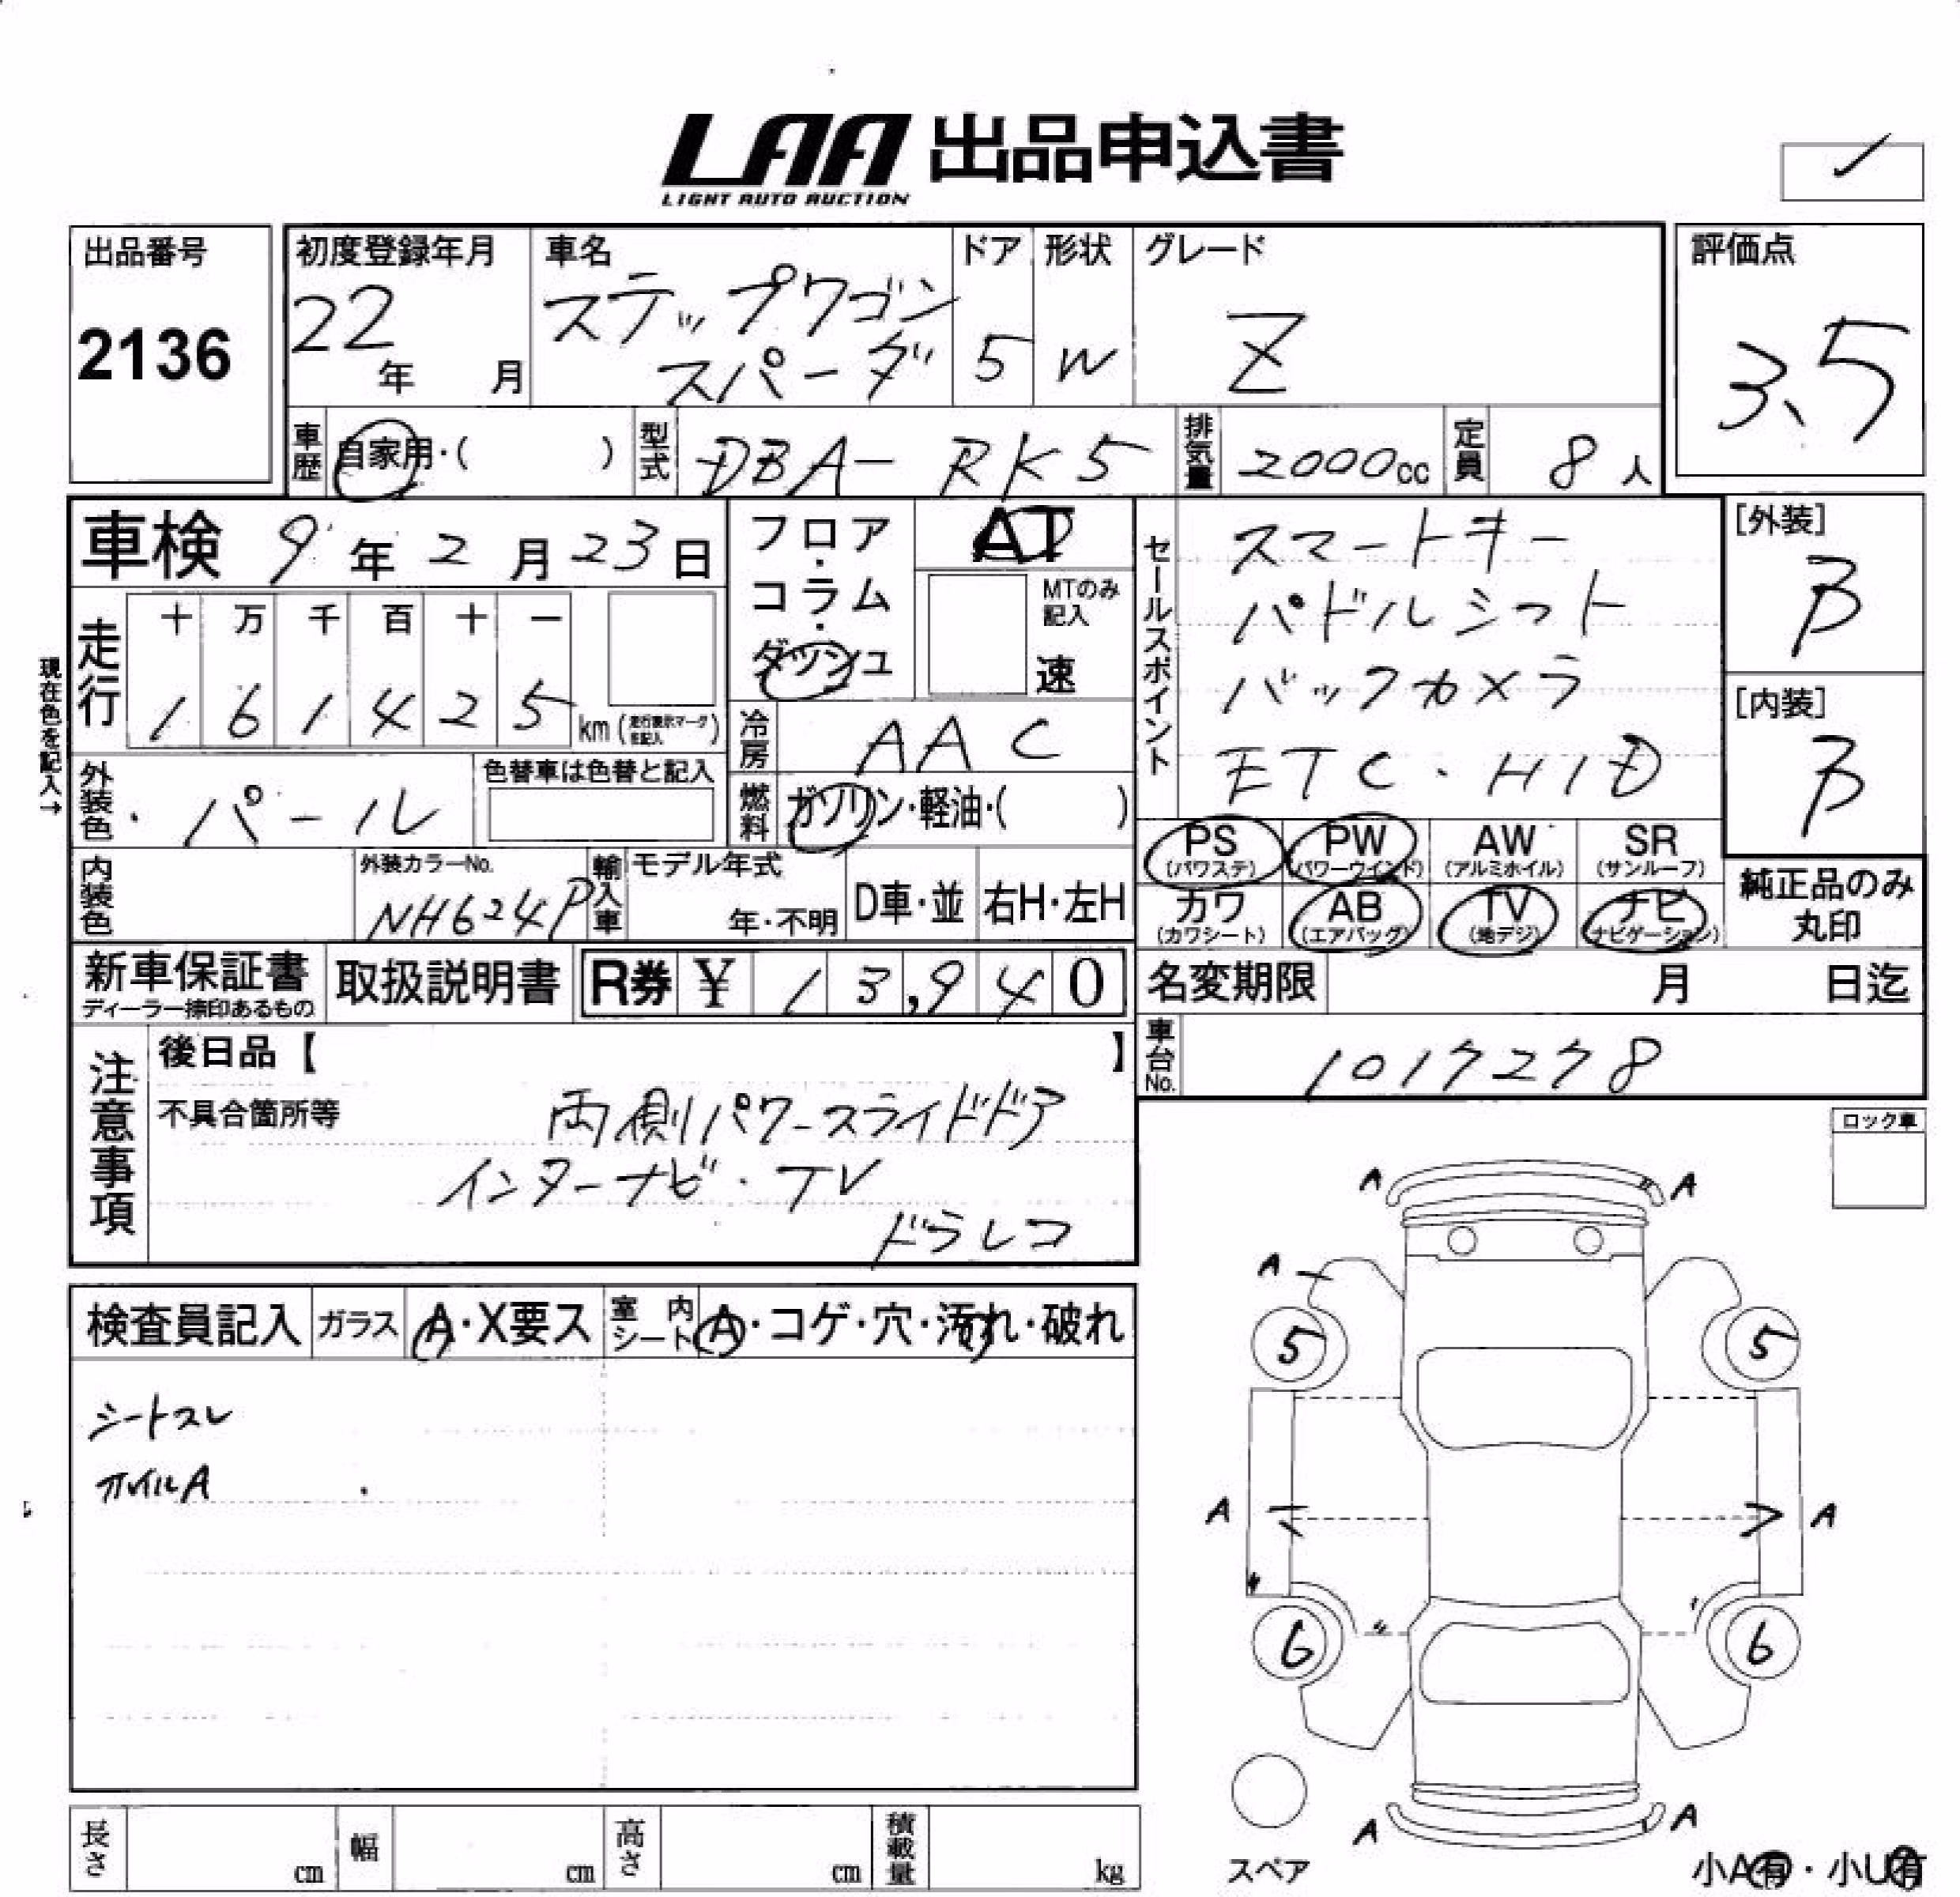 LAA 出品申込書
LIGHT AUTO AUCTION
出品番号
2136
初度登録年月
22年 月
車名
ステップワゴン
スパーダ
ドア
5
形状
W
グレード
Z
評価点
3.5
車歴 自家用・( )
型式 DBA-RK5
排気量 2000cc
定員 8人
車検 9年2月23日
現在色を記入→
走行
十 万 千 百 十 一
1 6 1 4 2 5 km (走行表示マークを記入)
フロア・コラム・ダッシュ
AT
MTのみ記入
速
冷房 AAC
燃料 ガソリン・軽油・( )
セールスポイント
スマートキー
パドルシフト
バックカメラ
ETC・HID
[外装]
B
[内装]
B
外装色・パール
色替車は色替と記入
内装色
外装カラーNo.
NH624P
輸入車
モデル年式
年・不明
D車・並
右H・左H
PS (パワステ)
PW (パワーウインド)
AW (アルミホイル)
SR (サンルーフ)
カワ (カワシート)
AB (エアバッグ)
TV (地デジ)
ナビ (ナビゲーション)
純正品のみ
丸印
新車保証書
ディーラー捺印あるもの
取扱説明書
R券 ¥ 13,940
名変期限 月 日迄
車台No. 1017278
注意事項
後日品【 】
不具合箇所等
両側パワースライドドア
インターナビ・TV
ドラレコ
ロック車
検査員記入
ガラス A・X要ス
室内シート A・コゲ・穴・汚れ・破れ
シートスレ
ホイルA
A A
A
5 5
A A
6 6
A A
スペア
小A有・小U有
長さ cm
幅 cm
高さ cm
積載量 kg